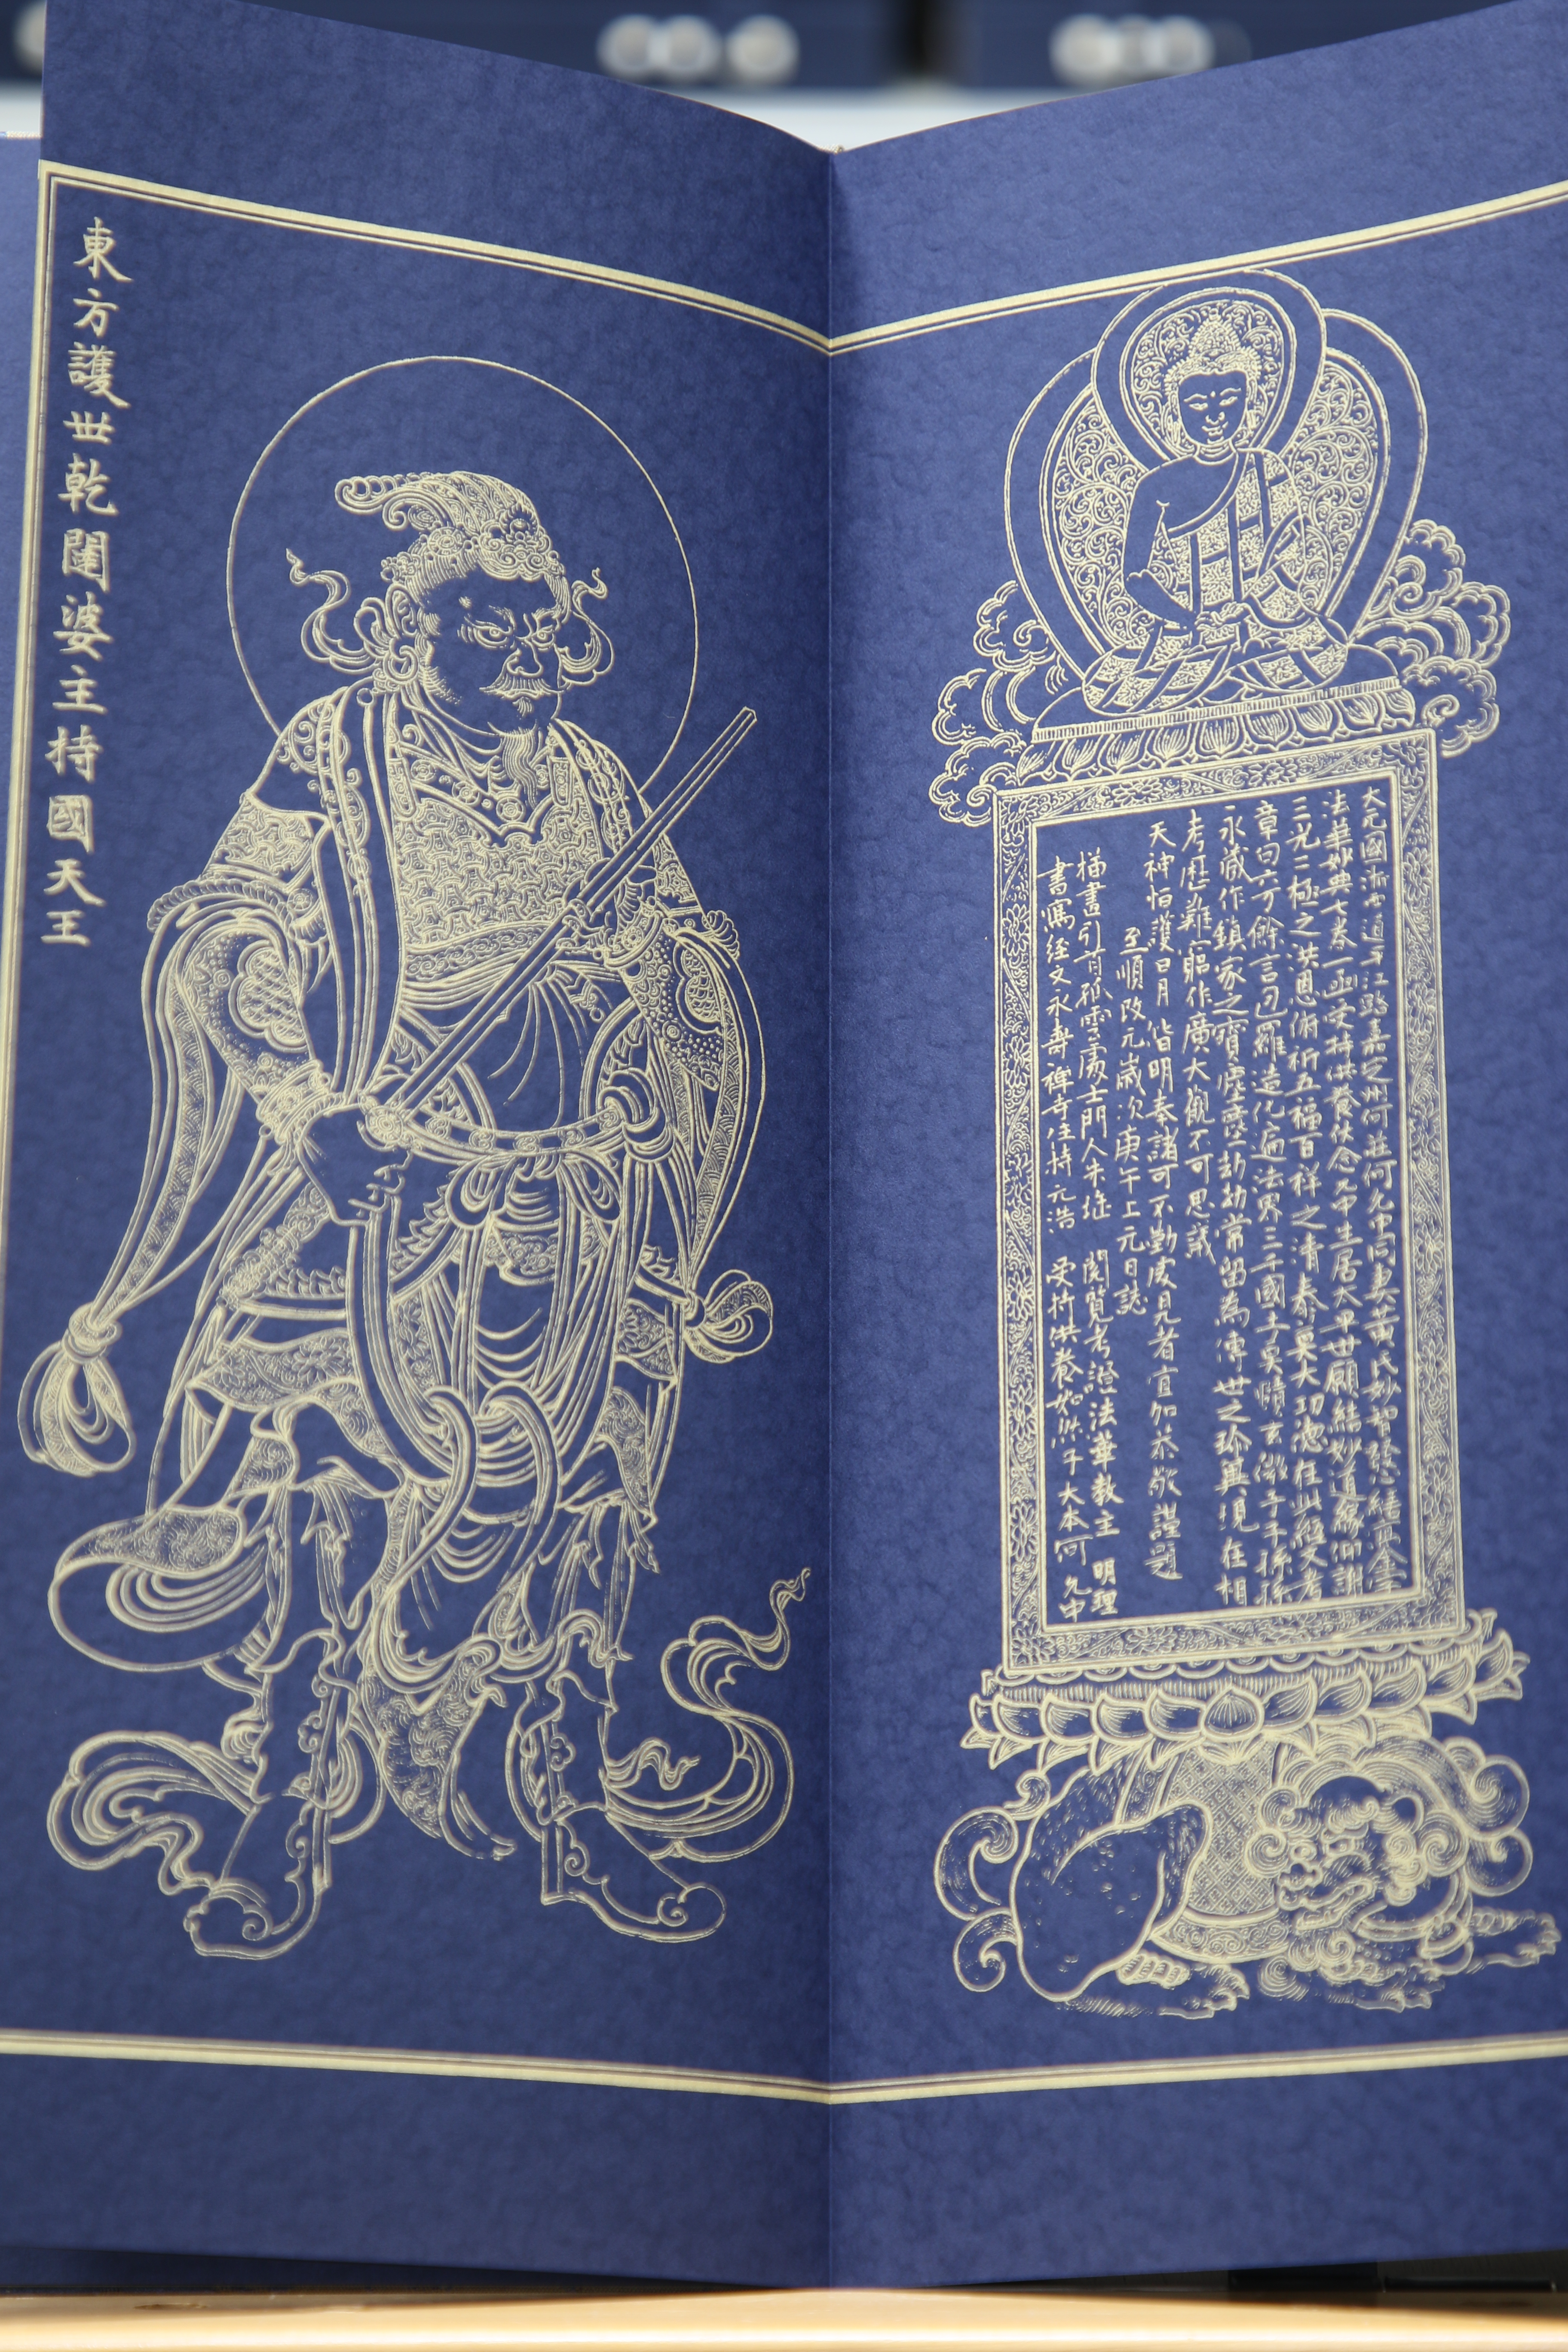 大元國浙西道平江路嘉定州何莊何允中同妻黃氏妙智發心結金書
法華妙典七卷一函受持供養伏念允中生居大平世願結妙道緣仰謝
三光二極之洪恩俯祈五福百祥之清泰莫大功德在此經文者
章曰六万餘言包羅造化遍法界三千國土玄微子子孫孫
永藏作鎮家之寶塵塵劫劫常留為傳世之珍具現在相
考歷難作廣大觀不可思議
天神怕護日月皆明奉諸可不勤虔見者宜加恭敬謹題
至順改元歲次庚午上元日誌
描畫引首孤雲處士門人朱继 閱覽考證法華教主 明理
書寫経文永壽禪寺住持元浩 受持供養如來子大本何允中
東方護世乾闥婆主持國天王